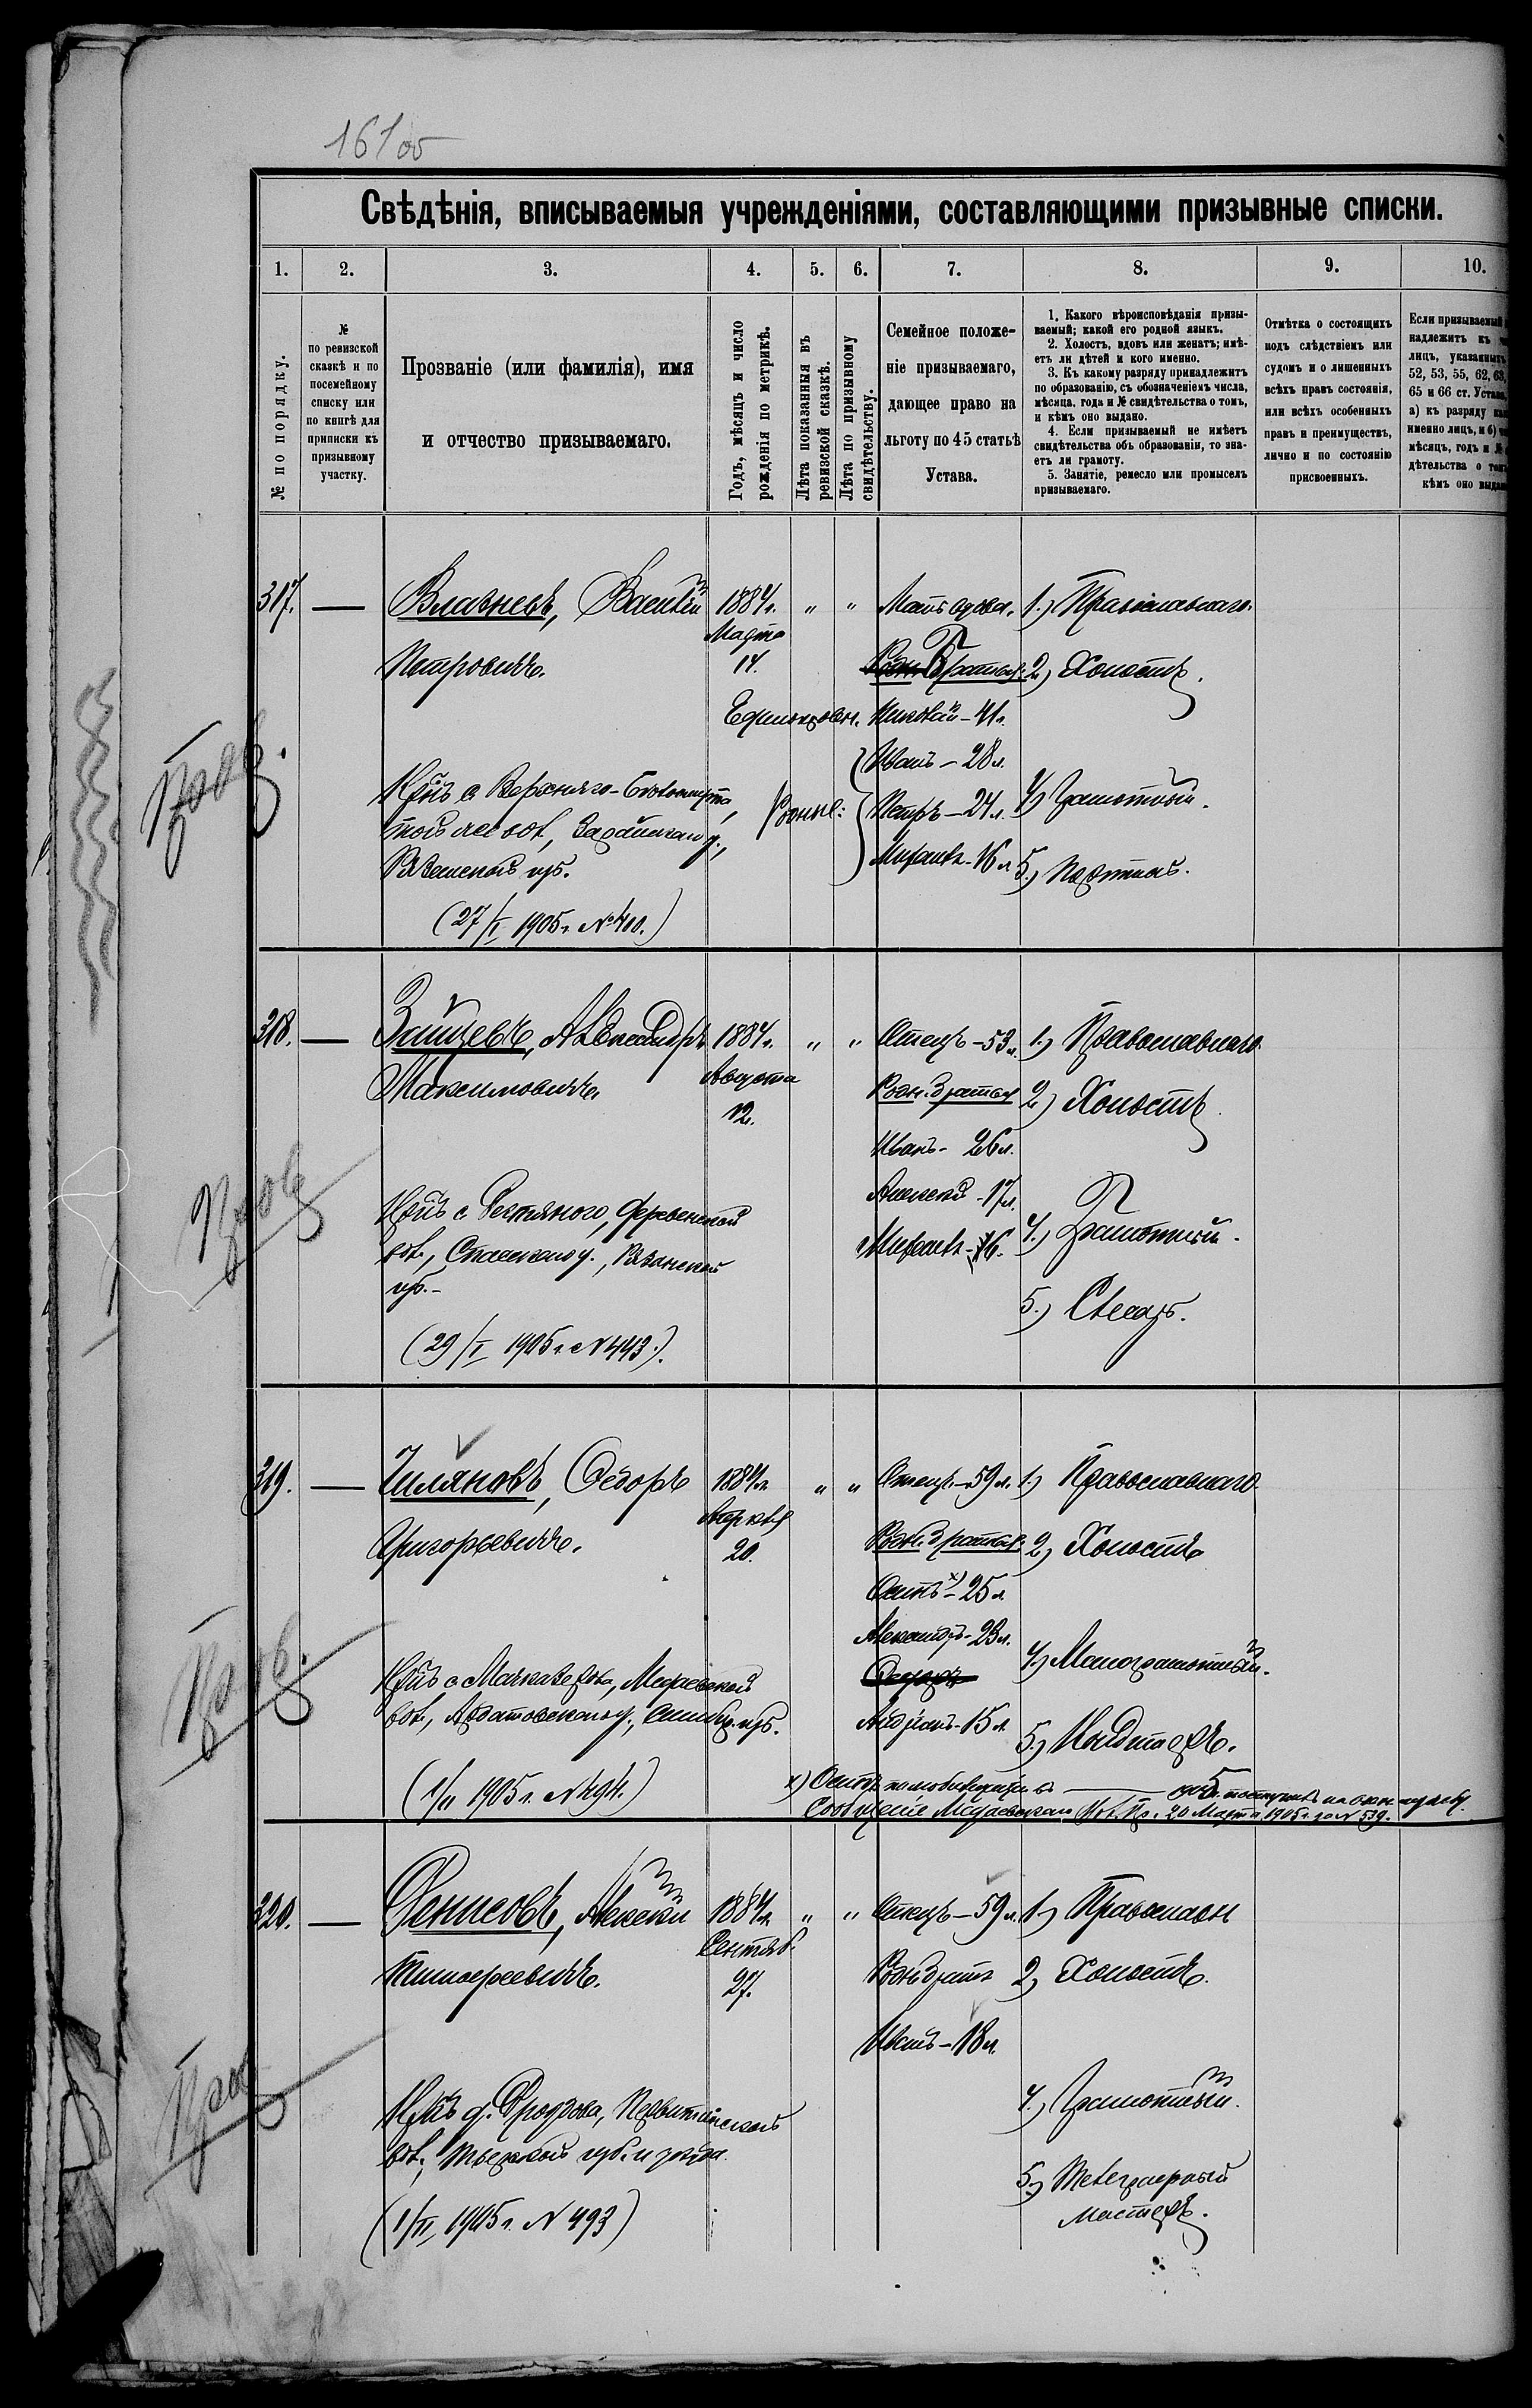 161 об
Свѣдѣнія, вписываемыя учрежденіями, составляющими призывные списки.
1. 2. 3. 4. 5. 6. 7. 8. 9. 10.
№ по порядку.
№
по ревизской
сказкѣ и по
посемейному
списку или
по книгѣ для
приписки къ
призывному
участку.
Прозваніе (или фамилія), имя
и отчество призываемаго.
Годъ, мѣсяцъ и число
рожденія по метрикѣ.
Лѣта показанныя въ
ревизской сказкѣ.
Лѣта по призывному
свидѣтельству.
Семейное положе-
ніе призываемаго,
дающее право на
льготу по 45 статьѣ
Устава.
1. Какого вѣроисповѣданія призы-
ваемый; какой его родной языкъ.
2. Холостъ, вдовъ или женатъ; имѣ-
етъ ли дѣтей и кого именно.
3. Къ какому разряду принадлежитъ
по образованію, съ обозначеніемъ числа,
мѣсяца, года и № свидѣтельства о томъ,
и кѣмъ оно выдано.
4. Если призываемый не имѣетъ
свидѣтельства объ образованіи, то зна-
етъ ли грамоту.
5. Занятіе, ремесло или промыселъ
призываемаго.
Отмѣтка о состоящихъ
подъ слѣдствіемъ или
судомъ и о лишенныхъ
всѣхъ правъ состоянія,
или всѣхъ особенныхъ
правъ и преимуществъ,
лично и по состоянію
присвоенныхъ.
Если призываемый
надлежитъ къ
лицъ, указанныхъ
52, 53, 55, 62, 63,
65 и 66 ст. Устава,
а) къ разряду
именно лицъ, и б)
мѣсяцъ, годъ и №
дѣтельства о томъ
кѣмъ оно выдано
317. — Василій 1884 г. " " Мать вдова. 1.) Православнаго.
Марта
Петровичъ. 14. Братья: 2.) Холостъ.
Единокровн. - 41 л.
Иванъ - 28 л.
Кр-нъ с. Верхняго-Бѣлоомута, Родные: Петръ - 24 л. 4.) Грамотный.
той же вол., Зарайскаго у., Михаилъ - 16 л. 5.) Портной.
Рязанской губ.
(27/I 1905 г. № 400.)
318. — Зайцевъ, Александръ 1884 г. " " Отецъ - 53 л. 1.) Православнаго.
Максимовичъ. Августа Родн. братья 2.) Холостъ.
12. Иванъ - 26 л.
Алексѣй - 17 л.
Михаилъ - 16. 4.) Грамотный.
вол., Спасскаго у., Рязанской
губ. -
5.) Слесарь.
(29/I 1905 г. № 443.)
319. — Чиляновъ, Ѳедоръ 1884 г. " " Отецъ - 59 л. 1.) Православнаго.
Апрѣля
Григорьевичъ. 20. Родн. братья: 2.) Холостъ
Осипъ x) - 25 л.
Александръ - 23 л. 4.) Малограмотный.
вол., Ардатовскаго у., Симбир. губ. Андріанъ - 15 л.
5.)
(1/II 1905 г. № 494.)
x) Осипъ по мобилизаціи въ
Сообщеніе Вол. Пр. 20 Марта 1905 г. за № 539.
320. — Денисовъ, Алексѣй 1884 г. " " Отецъ - 59 л. 1.) Православн
Сентяб.
Тимофеевичъ. 27. Родн. братъ 2.) Холостъ.
Иванъ - 18 л.
Кр-нъ д. Фролова, Первитинской 4.) Грамотный.
вол., Тверской губ. и уѣзда.
5.) Телеграфный
мастеръ.
(1/II 1905 г. № 493)